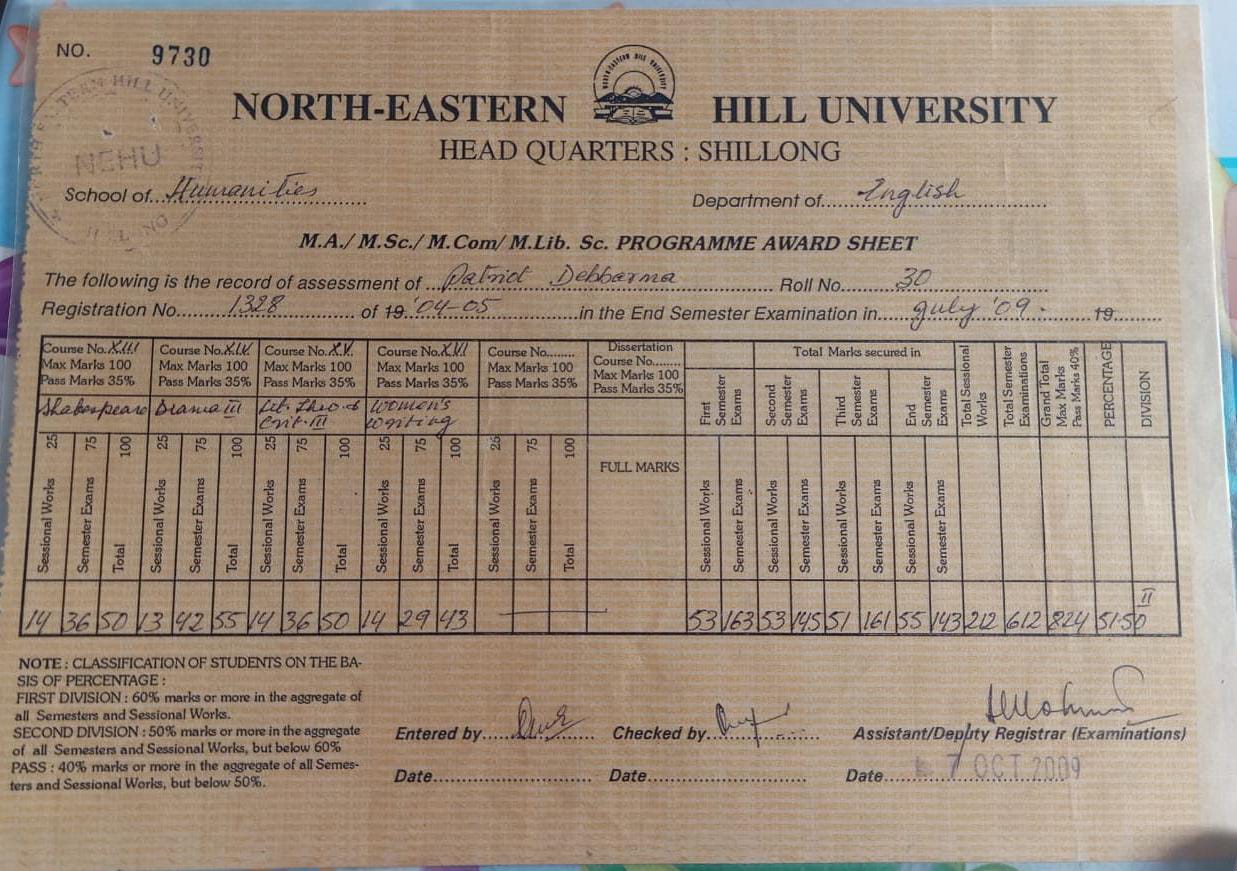 NO. 9730
NORTH-EASTERN HILL UNIVERSITY
NEHU
HEAD QUARTERS : SHILLONG
School of Humanities Department of English
M.A./ M.Sc./ M.Com/ M.Lib. Sc. PROGRAMME AWARD SHEET
The following is the record of assessment of Patrict Debbarma Roll No. 30
Registration No. 1328 of 19 '04-05 in the End Semester Examination in July '09. 19
Course No. XIII Course No. XIV Course No. XV Course No. XVI Course No. Dissertation Total Marks secured in
Max Marks 100 Max Marks 100 Max Marks 100 Max Marks 100 Max Marks 100 Course No.
Pass Marks 35% Pass Marks 35% Pass Marks 35% Pass Marks 35% Pass Marks 35% Max Marks 100
Pass Marks 35%
Shakespeare Drama III Lit. Theo. & Crit. III Women's Writing
First Semester Exams Second Semester Exams Third Semester Exams End Semester Exams Total Sessional Works Total Semester Examinations Grand Total Max Marks Pass Marks 40% PERCENTAGE DIVISION
25 75 100 25 75 100 25 75 100 25 75 100 25 75 100
FULL MARKS
Sessional Works Semester Exams Total Sessional Works Semester Exams Total Sessional Works Semester Exams Total Sessional Works Semester Exams Total Sessional Works Semester Exams Total Sessional Works Semester Exams Sessional Works Semester Exams Sessional Works Semester Exams Sessional Works Semester Exams
14 36 50 13 42 55 14 36 50 14 29 43 53 163 53 145 51 161 55 143 212 612 824 51.50 II
NOTE : CLASSIFICATION OF STUDENTS ON THE BA-
SIS OF PERCENTAGE :
FIRST DIVISION : 60% marks or more in the aggregate of
all Semesters and Sessional Works.
SECOND DIVISION : 50% marks or more in the aggregate
of all Semesters and Sessional Works, but below 60%
PASS : 40% marks or more in the aggregate of all Semes-
ters and Sessional Works, but below 50%.
Entered by Checked by Assistant/Deputy Registrar (Examinations)
Date Date Date 7 OCT 2009